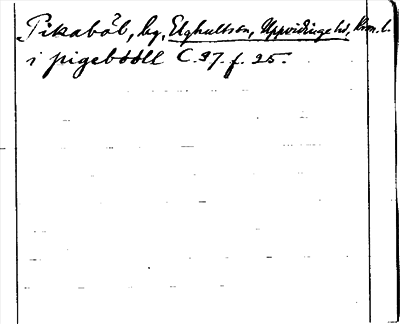 Pikaböl, by, Elghultssn, Uppvidinge hd, Kron. l.
i pigeböдll C. 37. f. 25.